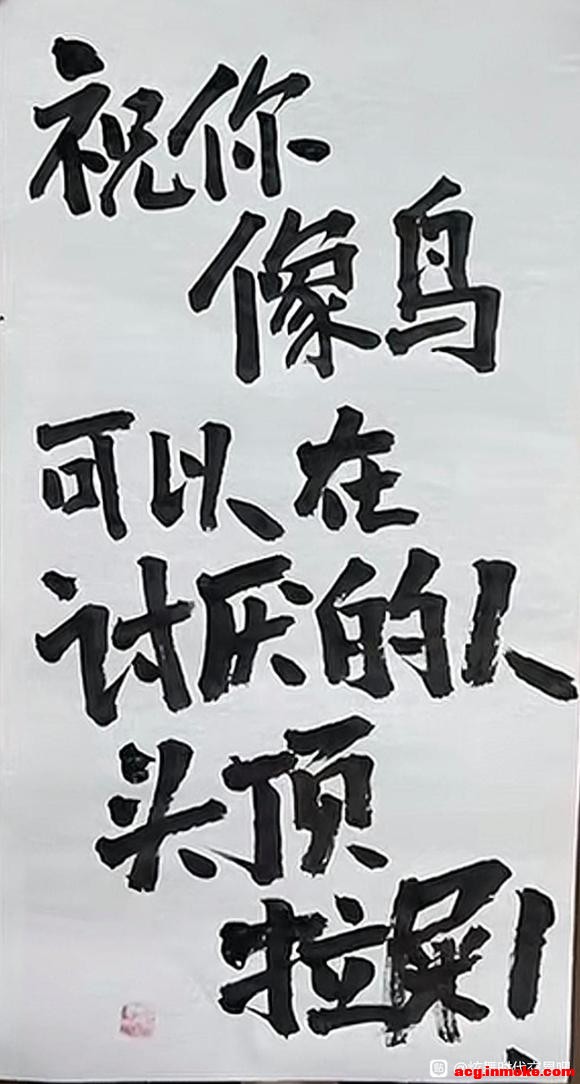 祝你
像鸟
可以在
讨厌的人
头顶
拉屎!
acg.inmoke.com